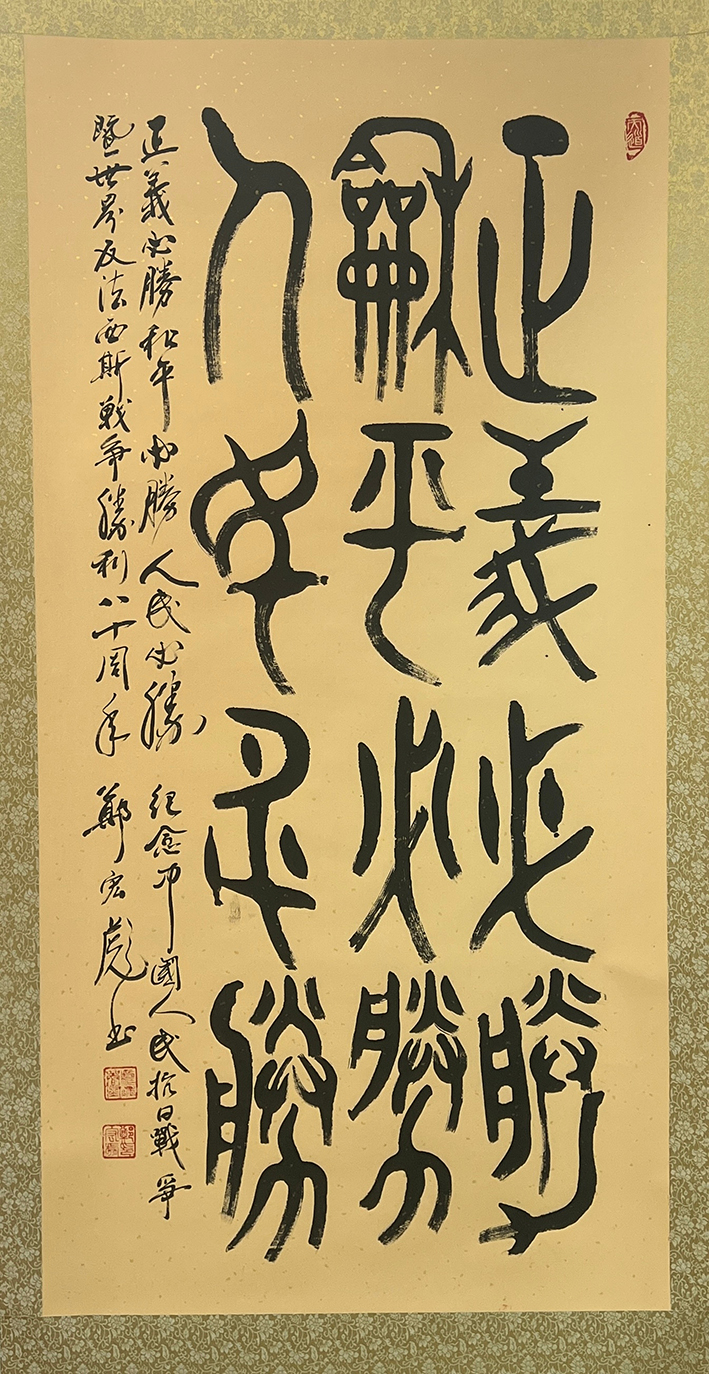 正義必勝
龢平必勝
人民必勝
正義必勝和平必勝人民必勝 紀念中國人民抗日戰爭
暨世界反法西斯戰爭勝利八十周年 鄭宏彪書